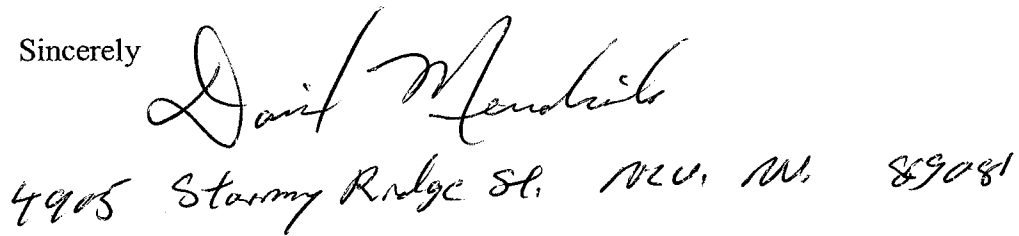 Sincerely David
4905 Stormy Ridge St. NLV. NV. 89081